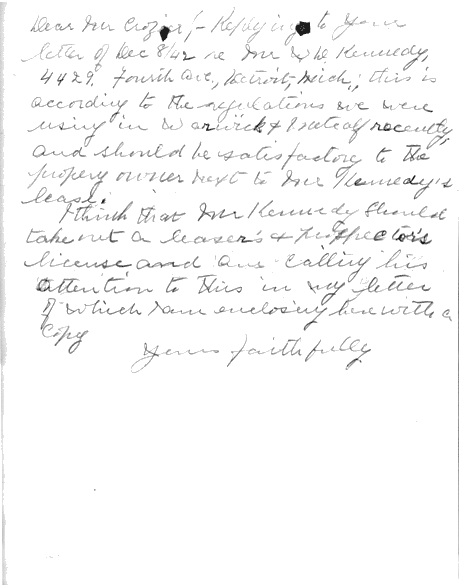 Dear Mr Crozier:- Replying to your
letter of Dec 8/42 re Mr W De Kennedy,
4429. Fourth Ave., Detroit, Mich.; this is
according to the regulations we were
using in Warwick & Metcalf recently,
and should be satisfactory to the
propery owner next to Mr Kennedy's
lease.
I think that Mr Kennedy should
take out a leaser's & prospector's
license and am calling his
attention to this in my letter
of which I am enclosing herewith a
copy
Yours faithfully